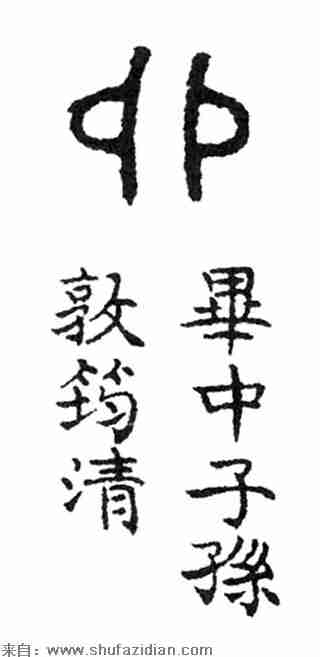 卯
畢中子孫
敦筠清
来自：www.shufazidian.com